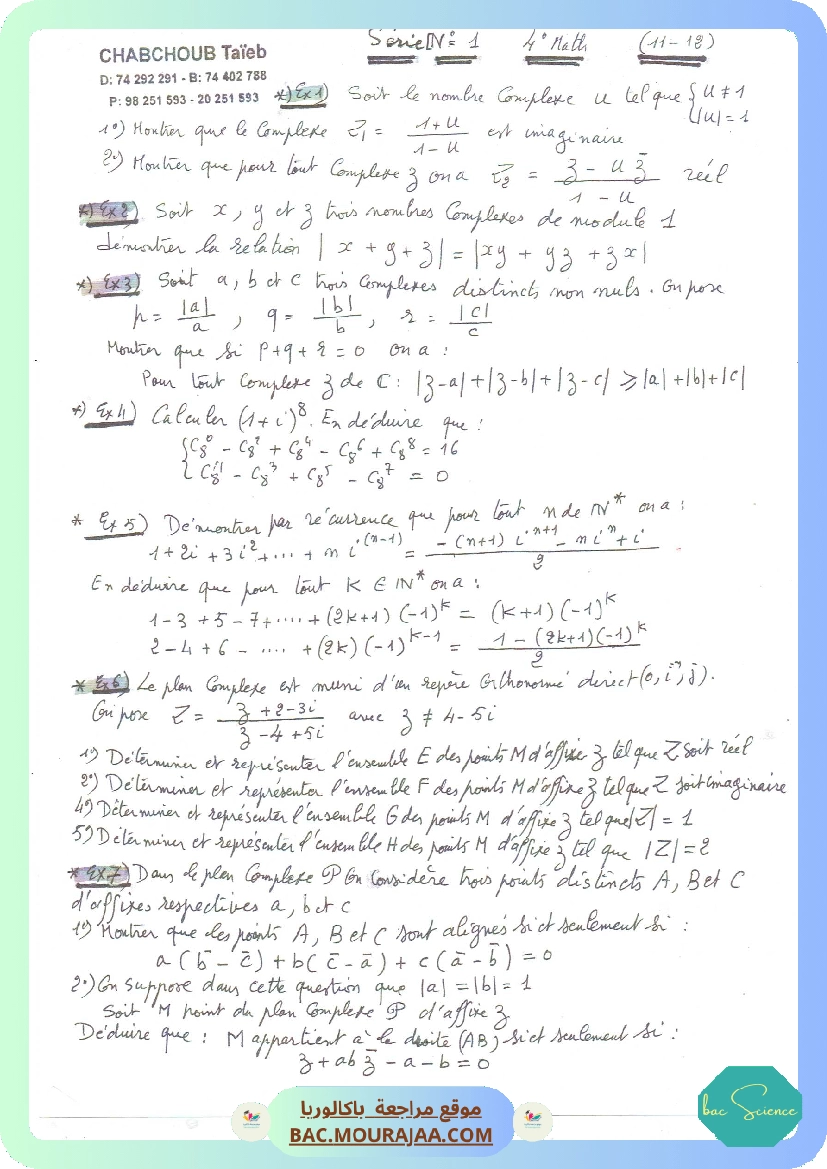 Série N° 1 4° Math (11-12)
CHABCHOUB Taïeb
D: 74 292 291 - B: 74 402 788
P: 98 251 593 - 20 251 593
*) Ex 1) Soit le nombre Complexe u tel que { u ≠ 1
|u| = 1
1°) Montrer que le Complexe Z₁ = (1+u)/(1-u) est imaginaire
2°) Montrer que pour tout Complexe z on a Z₂ = (z - u z̄)/(1 - u) réel
*) Ex 2) Soit x, y et z trois nombres Complexes de module 1
démontrer la relation | x + y + z | = | xy + yz + zx |
*) Ex 3) Soit a, b et c trois Complexes distincts non nuls. On pose
p = |a|/a , q = |b|/b , r = |c|/c
Montrer que si p+q+r = 0 on a :
Pour tout Complexe z de C : |z-a|+|z-b|+|z-c| ⩾ |a|+|b|+|c|
*) Ex 4) Calculer (1+i)⁸. En déduire que :
{ C₈⁰ - C₈² + C₈⁴ - C₈⁶ + C₈⁸ = 16
C₈¹ - C₈³ + C₈⁵ - C₈⁷ = 0
* Ex 5) Démontrer par récurrence que pour tout n de IN* on a :
1+2i+3i²+....+ n i^(n-1) = (-(n+1) i^(n+1) - n i^n + i)/2
En déduire que pour tout K ∈ IN* on a :
1-3+5-7+.....+(2k+1)(-1)^k = (k+1)(-1)^k
2-4+6-.....+(2k)(-1)^(k-1) = (1-(2k+1)(-1)^k)/2
* Ex 6) Le plan Complexe est muni d'un repère Orthonormé direct (o, i⃗, j⃗).
On pose Z = (z+2-3i)/(z-4+5i) avec z ≠ 4-5i
1°) Déterminer et représenter l'ensemble E des points M d'affixe z tel que Z soit réel
2°) Déterminer et représenter l'ensemble F des points M d'affixe z tel que Z soit imaginaire
4°) Déterminer et représenter l'ensemble G des points M d'affixe z tel que |Z| = 1
5°) Déterminer et représenter l'ensemble H des points M d'affixe z tel que |Z| = 2
* Ex 7) Dans le plan Complexe P On Considère trois points distincts A, B et C
d'affixes respectives a, b et c
1°) Montrer que les points A, B et C sont alignés si et seulement si :
a(b̄ - c̄) + b(c̄ - ā) + c(ā - b̄) = 0
2°) On suppose dans cette question que |a| = |b| = 1
Soit M point du plan Complexe P d'affixe z
Déduire que : M appartient à la droite (AB) si et seulement si :
z + ab z̄ - a - b = 0
موقع مراجعة باكالوريا
BAC.MOURAJAA.COM
bac Science